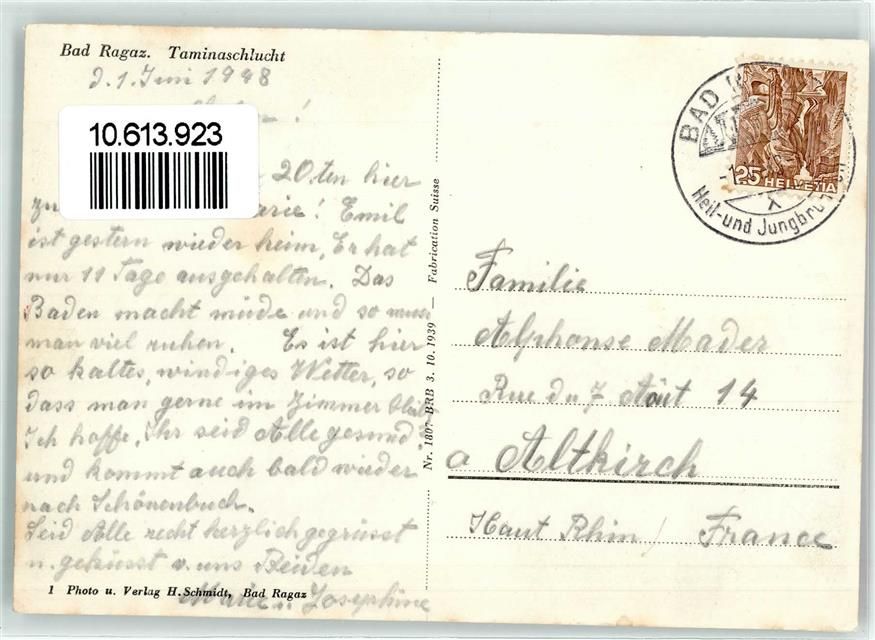 Bad Ragaz. Taminaschlucht
d. 1. Juni 1948
!
10.613.923
20.ten hier
zu arie! Emil
ist gestern wieder heim, Er hat
nur 11 Tage ausgehalten. Das
Baden macht müde und so muss
man viel ruhen. Es ist hier
so kaltes, windiges Wetter, so
dass man gerne im Zimmer bleibt
Ich hoffe, Ihr seid Alle gesund
und kommt auch bald wieder
nach Schönenbuch.
Seid Alle recht herzlich gegrüsst
u. geküsst v. uns Beiden
Marie u. Josephine
1 Photo u. Verlag H. Schmidt, Bad Ragaz
Nr. 1807 BRB 3. 10. 1939 — Fabrication Suisse
BAD
Heil-und Jungbr
25 HELVETIA
Familie
Alphonse Mader
Rue du 7 Août 14
a Altkirch
Haut Rhin / France